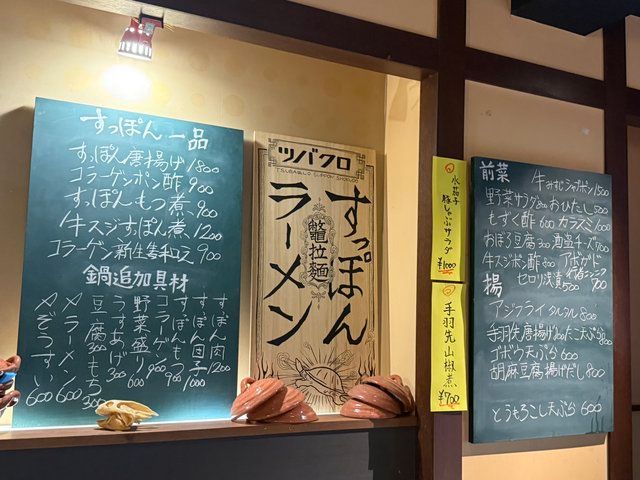 すっぽん一品
すっぽん唐揚げ 1800
コラーゲンポン酢 900
すっぽんもつ煮 900
牛スジすっぽん煮 1200
コラーゲン新生姜和え 900
鍋追加具材
すっぽん肉 1200
すっぽん団子 1000
すっぽんもつ 900
コラーゲン 900
野菜盛り 600
うすあげ 300
豆腐 300
もち 300
〆ラーメン 600
〆ぞうすい 600
ツバクロ
TSUBAKURO SUPPON SHOKUDO
すっぽん
ラーメン
鼈拉麺
水茄子
豚しゃぶサラダ
¥1000
手羽先山椒煮
¥700
前菜
牛みすじシャブポン 1500
野菜サラダ 800 おひたし 500
もずく酢 600 カラスミ 1000
おぼろ豆腐 300 酒盗チーズ 500
牛スジポン酢 800 アボカド
セロリ浅漬 500 900
揚
アジフライタルタル 800
手羽先唐揚げ たこ天ぷら 800
ゴボウ天ぷら 600
胡麻豆腐揚げだし 800
とうもろこし天ぷら 600